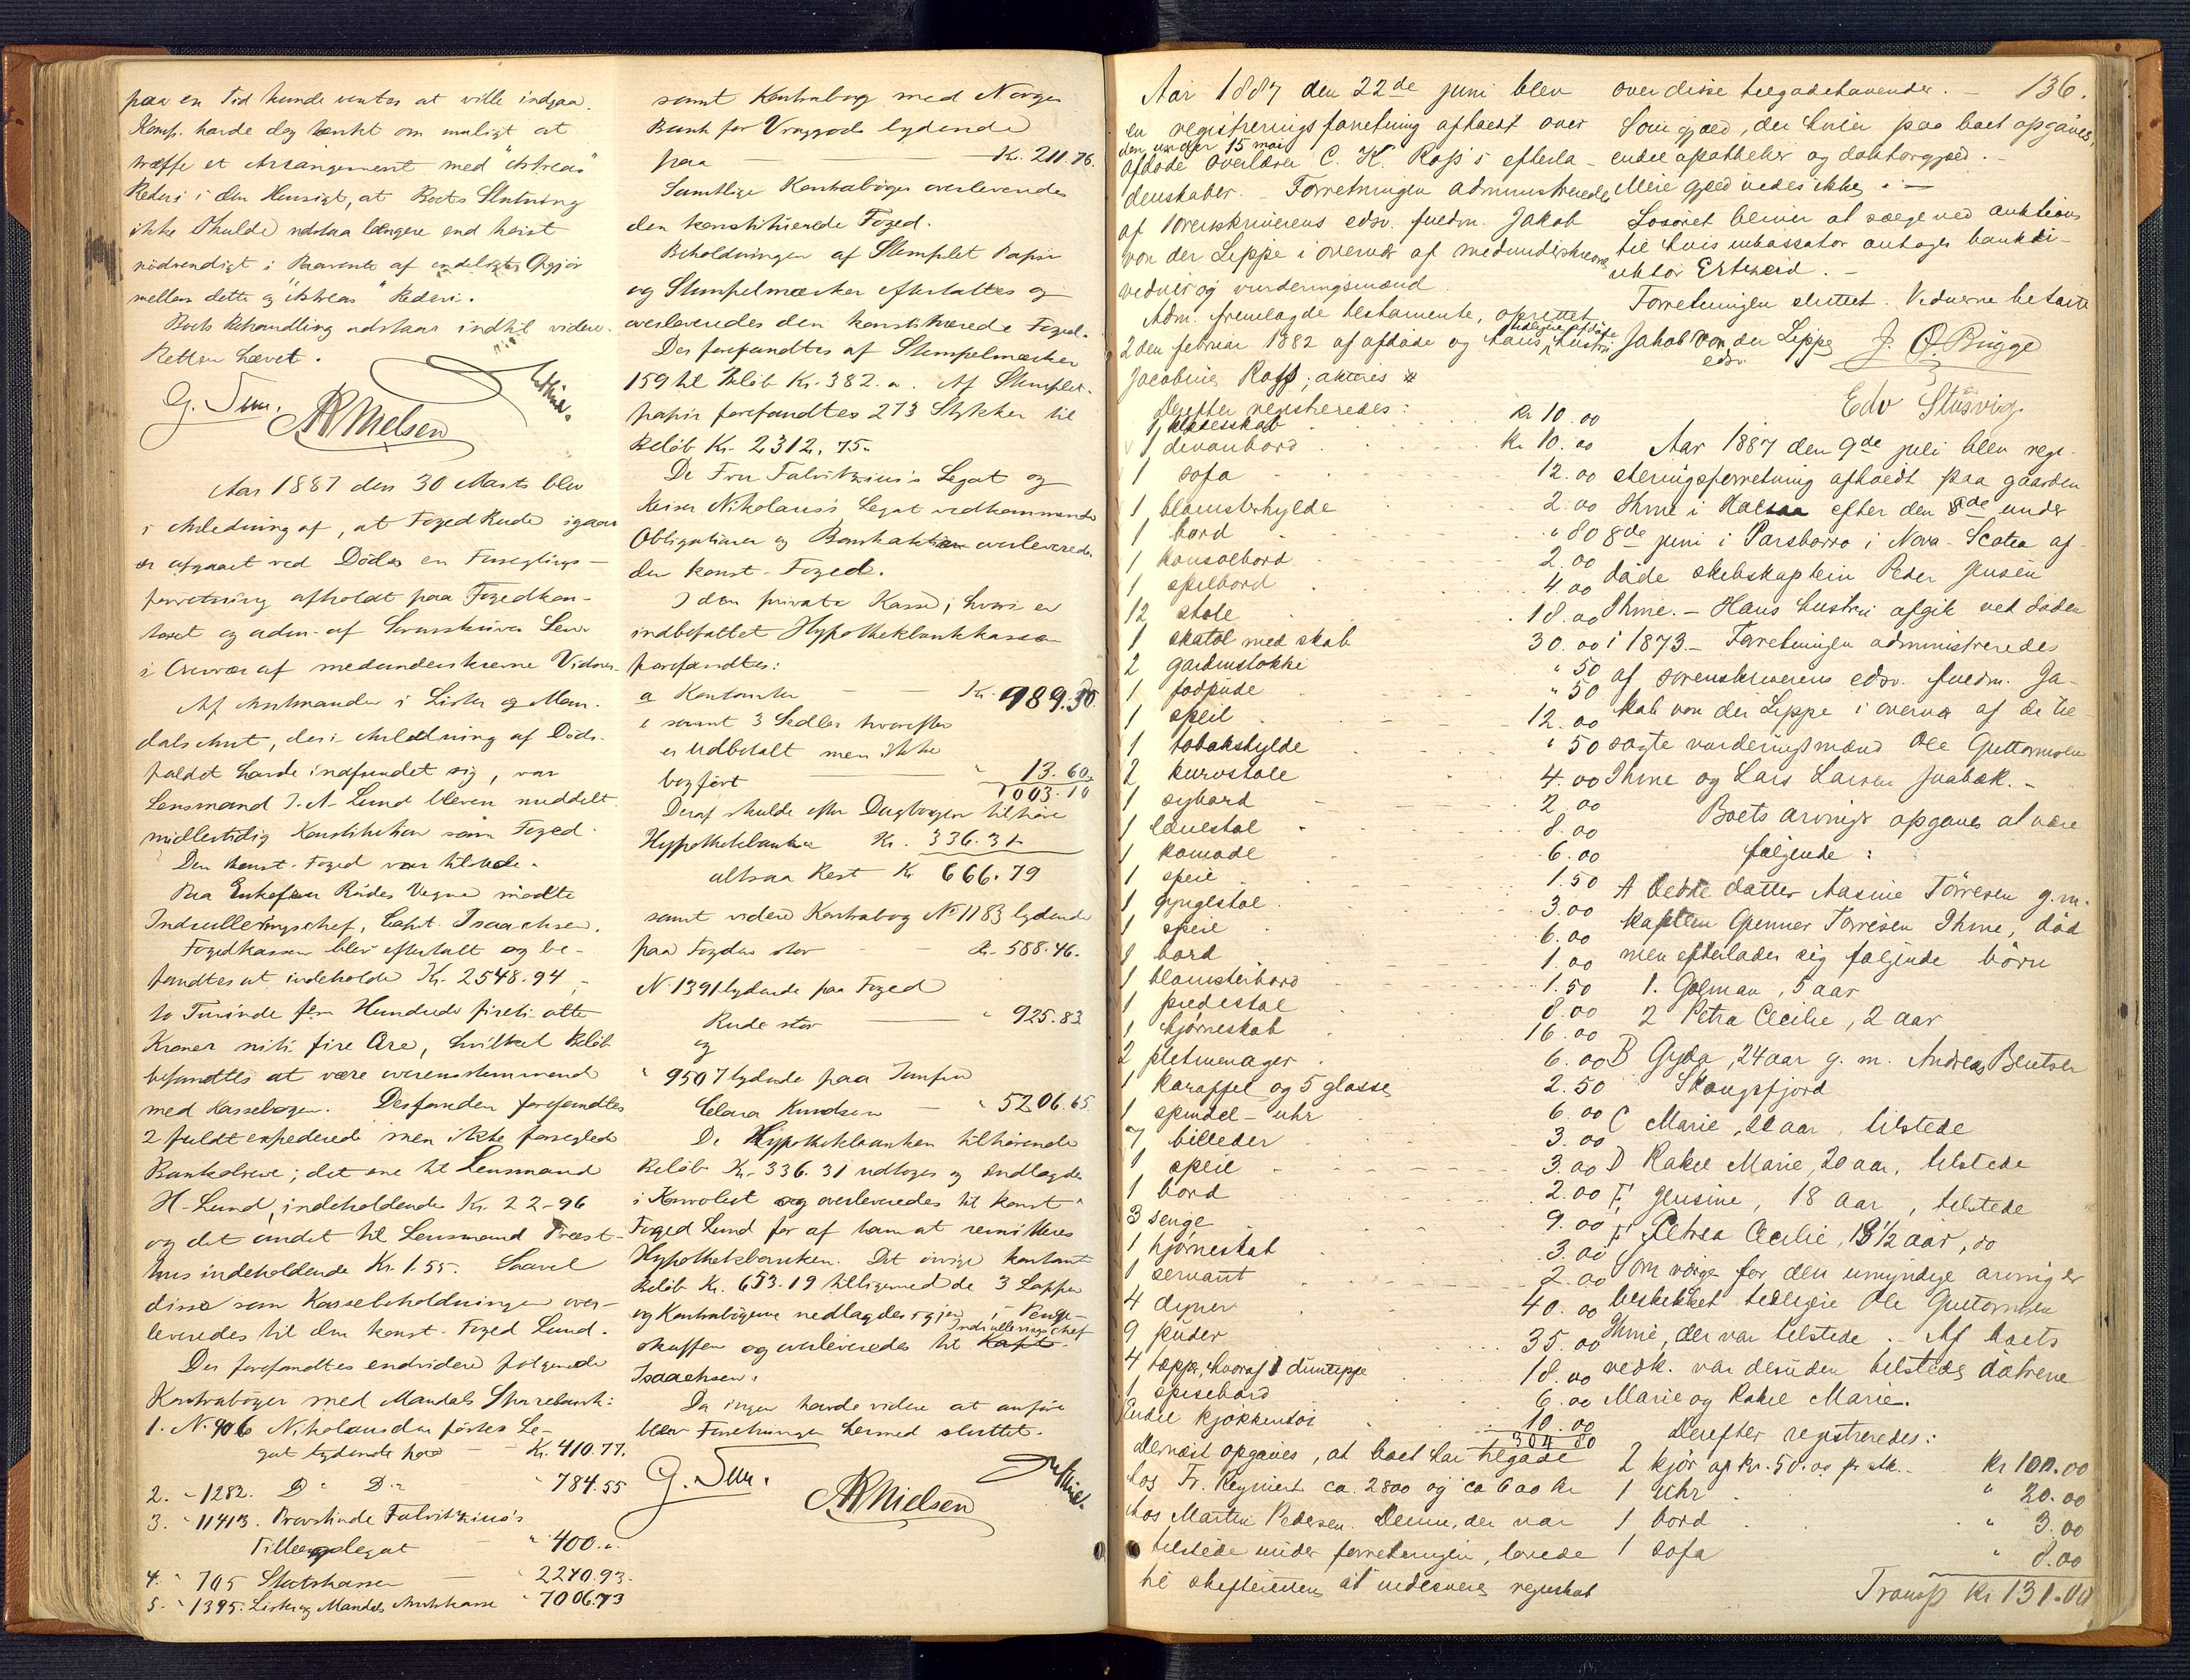 paa en Tid kunde ventes at ville indgaa.
Komp. havde dog tænkt om muligt at
træffe et Arrangement med "Astreas"
Rederi i den Hensigt, at Boets Slutning
ikke skulde udstaa længere end høist
nødvendigt i Paavente af endeligt Opgjør
mellem dette og "Astreas" Rederi.
Boets Behandling udstaar indtil videre.
Retten hævet.
ARNielsen
Aar 1887 den 30 Marts blev
i Anledning af, at Foged Rude igaar
er afgaaet ved Døden en Forseglings-
forretning afholdt paa Fogedkon-
toret og adm. af Sorenskriver
i Overvær af medunderskrevne Vidner.
Af Amtmanden i Lister og Man-
dals Amt, der i Anledning af Døds-
faldet havde indfundet sig, var
Lensmand J. A. Lund bleven meddelt
midlertidig Konstitution som Foged.
Den konst. Foged var tilstede.
Paa Enkefru Rudes Vegne mødte
Indrulleringschef, Capt. Isaachsen.
Fogedkassen blev eftertalt og be-
fandtes at indeholde Kr. 2548.94,
to Tusinde fem Hundrede firti otte
Kroner nitti fire Øre, hvilket Beløb
befandtes at være overensstemmende
med Kassebogen. Desforuden forefandtes
2 fuldt expederede men ikke forseglede
Bankobreve; det ene til Lensmand
H. Lund, indeholdende Kr. 22-96
og det andet til Lensmand Præst-
hus indeholdende Kr. 1.55. Saavel
disse som Kassebeholdningen over-
leveredes til den konst. Foged Lund.
Der forefandtes endvidere følgende
Kontrabøger med Mandals Sparebank:
1. No 906 Nikolaus den førstes Le-
gat lydende paa - Kr. 410.77.
2. " 1282. Do Do " 784.55
3. " 11413. Provstinde Fabritzius's
Tillægslegat " 400."
4. " 705 Statskassen " 2270.93.
5. " 1395. Lister og Mandals Amtskasse " 7006.73
samt Kontrabog med Norges
Bank for Vraggods lydende
paa Kr. 211.76.
Samtlige Kontrabøger overleveredes
den konstituerede Foged.
Beholdningen af Stemplet Papir
og Stempelmærker eftertaltes og
overleveredes den konstituerede Foged.
Der forefandtes af Stempelmærker
159 til Beløb Kr. 382. ". Af Stemplet
papir forefandtes 273 Stykker til
Beløb Kr. 2312. 75.
De Fru Fabritzius's Legat og
Keiser Nikolaus's Legat vedkommende
Obligationer og Bankaktier overleveredes
den konst. Foged.
I den private Kasse, hvori er
indbefattet Hypothekbankkassen
forefandtes:
a Kontanter Kr. 989.50
samt 3 Sedler hvorefter
er Udbetalt men ikke
bogført " 13.60
1003.10
Deraf skulde efter Dagbogen tilhøre
Hypothekbanken Kr. 336.31
altsaa Rest Kr. 666.79
samt videre Kontrabog No 1183 lydende
paa Fogden stor Kr. 588.46.
No 1391 lydende paa Foged
Rude stor " 925.83
og
" 9507 lydende paa Jomfru
Clara Knudsen " 5206.65
De Hypothekbanken tilhørende
Beløb Kr. 336.31 udtoges og indlagdes
i Konvolut og overleveredes til konst.
Foged Lund for af ham at remitteres
Hypothekbanken. Det øvrige kontant
Beløb Kr. 653.19 tilligemed de 3 Lapper
og Kontrabøgerne nedlagdes igjen i Penge-
skuffen og overleveredes til Indrulleringschef
Isaachsen.
Da ingen havde videre at anføre
blev Forretningen hermed sluttet.
ARNielsen
136.
Aar 1887 den 22de juni blev
en registreringsforretning afholdt over
den under 15 mai
afdøde overlærer C. K. Rosss efterla-
denskaber. - Forretningen administreredes
af sorenskriverens edsv. fuldm. Jakob
von der Lippe i overvær af medunderskrevne
vidner og vurderingsmænd.
Adm. fremlagde testamente, oprettet
2den februar 1882 af afdøde og hans tidligere afdøde hustru
Jacobine Ross; akteres
Derefter registreredes:
1 klædesskab Kr 10.00
1 divanbord Kr 10.00
1 sofa 12.00
1 blomsterhylde 2.00
1 bord " 80
1 konsolbord 2.00
1 spilbord 4.00
12 stole 18.00
1 skatol med skab 30.00
2 gardinstokke " 50
1 fodpude " 50
1 speil 12.00
1 tobakshylde " 50
2 kurvstole 4.00
1 sybord 2.00
1 lænestol 8.00
1 komode 6.00
1 speil 1.50
1 gyngestol 3.00
1 speil 6.00
1 bord 1.00
1 blomsterbord 1.50
1 piedestal 8.00
1 hjørneskab 16.00
2 pletmenager 6.00
1 karaffel og 5 glasse 2.50
1 spindel-uhr 6.00
7 billeder 3.00
1 speil 3.00
1 bord 2.00
3 senge 9.00
1 hjørneskab 3.00
1 servant 2.00
4 dyner 40.00
9 puder 35.00
4 tæpper, hvoraf 1 duntæppe 18.00
1 spisebord 6.00
Endel kjøkkentøi 10.00
304 80
Dernæst opgaves, at boet har tilgode
hos Fr. Reymert ca. 2800 og ca 600 kr
hos Martin Pedersen. Denne, der var
tilstede under forretningen, lovede
til skifteretten at indlevere regnskab
over disse tilgodehavender. -
Som gjæld, der hviler paa boet opgaves,
endel apotheker og doktorgjæld. -
Mere gjæld vides ikke. -
Løsøret bliver at sælge ved auktion
til hvis inkassator antages bankdi-
rektør Esteneid. -
Forretningen sluttet. Vidnerne betalte
Jakob von der Lippe J. O. Brügge
edsv.
Edv Stusvig.
Aar 1887 den 9de juli blev regi-
streringsforretning afholdt paa gaarden
Ihme i Halsaa efter den under
8de juni i Parsborro i Nova-Scotea af-
døde skibskaptein Peder Jensen
Ihme. - Hans hustru afgik ved døden
i 1873. - Forretningen administreredes
af sorenskriverens edsv. fuldm. Ja-
kob von der Lippe i overvær af de til-
sagte vurderingsmænd Ole Guttormsen
Ihme og Lars Larsen Jaabæk. -
Boets arvinger opgaves at være
følgende:
A Ældste datter Aasine Tørresen g. m.
kaptein Gunner Tørresen Ihme, død
men efterlader sig følgende børn
1. Golman, 5 aar
2 Petra Cecilie, 2 aar
B Gyda, 24 aar g. m. Andreas Bentsen
Skougsfjord
C Marie, 22 aar, tilstede
D Rakel Marie, 20 aar, tilstede
E, Jensine, 18 aar, tilstede
F, Petrea Cecilie, 13 1/2 aar, do
Som værge for den umyndige arvinger
beskikket tidligere Ole Guttormsen
Ihme, der var tilstede. - Af boets
vedk. var desuden tilstede døtrene
Marie og Rakel Marie.
Derefter registreredes:
2 kjør af kr. 50.00 pr stk. Kr 100.00
1 uhr " 20.00
1 bord " 3.00
1 sofa " 8.00
Transp Kr 131.00